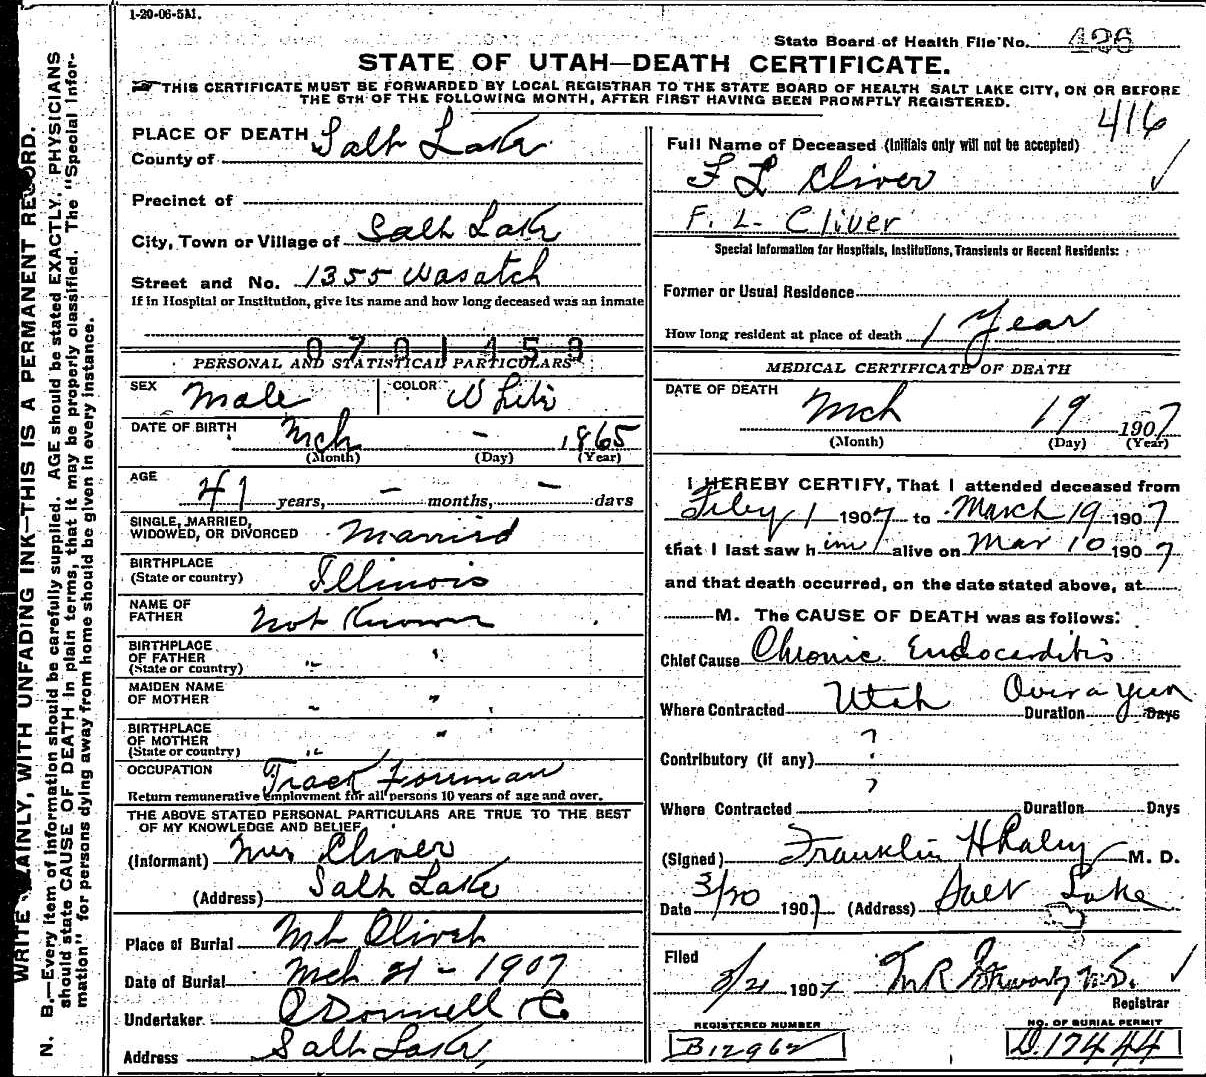 1-20-06-5M.
State Board of Health File No. 426
STATE OF UTAH—DEATH CERTIFICATE.
THIS CERTIFICATE MUST BE FORWARDED BY LOCAL REGISTRAR TO THE STATE BOARD OF HEALTH SALT LAKE CITY, ON OR BEFORE
THE 5TH OF THE FOLLOWING MONTH, AFTER FIRST HAVING BEEN PROMPTLY REGISTERED.
416
WRITE PLAINLY, WITH UNFADING INK—THIS IS A PERMANENT RECORD.
N. B.—Every item of information should be carefully supplied. AGE should be stated EXACTLY. PHYSICIANS
should state CAUSE OF DEATH in plain terms, that it may be properly classified. The "Special Infor-
mation" for persons dying away from home should be given in every instance.
PLACE OF DEATH
County of Salt Lake
Precinct of
City, Town or Village of Salt Lake
Street and No. 1355 Wasatch
If in Hospital or Institution, give its name and how long deceased was an inmate
0701459
PERSONAL AND STATISTICAL PARTICULARS
SEX Male COLOR White
DATE OF BIRTH Mch - 1865
(Month) (Day) (Year)
AGE 41 years, - months, - days
SINGLE, MARRIED,
WIDOWED, OR DIVORCED Married
BIRTHPLACE
(State or country) Illinois
NAME OF
FATHER Not Known
BIRTHPLACE
OF FATHER
(State or country) " "
MAIDEN NAME
OF MOTHER " "
BIRTHPLACE
OF MOTHER
(State or country) " "
OCCUPATION Track Forman
Return remunerative employment for all persons 10 years of age and over.
THE ABOVE STATED PERSONAL PARTICULARS ARE TRUE TO THE BEST
OF MY KNOWLEDGE AND BELIEF
(Informant) Mrs Cliver
(Address) Salt Lake
Place of Burial Mt Olivet
Date of Burial Mch 21 - 1907
Undertaker O'Donnell Co
Address Salt Lake
Full Name of Deceased (Initials only will not be accepted)
F L Cliver
F. L. Cliver
Special Information for Hospitals, Institutions, Transients or Recent Residents:
Former or Usual Residence
How long resident at place of death 1 Year
MEDICAL CERTIFICATE OF DEATH
DATE OF DEATH Mch 19 1907
(Month) (Day) (Year)
I HEREBY CERTIFY, That I attended deceased from
Feby 1 1907 to March 19 1907
that I last saw him alive on Mar 10 1907
and that death occurred, on the date stated above, at
M. The CAUSE OF DEATH was as follows:
Chief Cause Chronic Endocarditis
Where Contracted Utah Duration Over a year Days
Contributory (if any) ?
Where Contracted ? Duration Days
(Signed) Franklin H Raley M. D.
Date 3/20 1907 (Address) Salt Lake
Filed 3/21 1907
Registrar
REGISTERED NUMBER NO. OF BURIAL PERMIT
B12962 D.17444